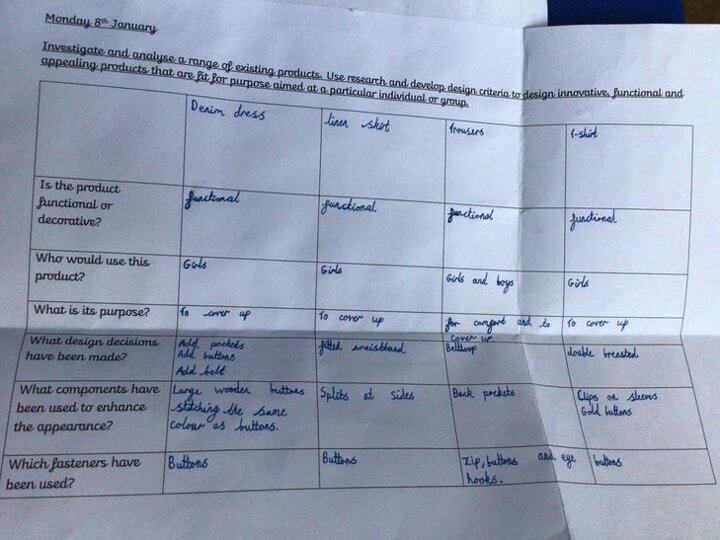 Monday 8th January
Investigate and analyse a range of existing products. Use research and develop design criteria to design innovative, functional and
appealing products that are fit for purpose aimed at a particular individual or group.
Denim dress
linen skirt
Trousers
T-shirt
Is the product
functional or
decorative?
functional
functional
functional
functional
Who would use this
product?
Girls
Girls
Girls and boys
Girls
What is its purpose?
To cover up
To cover up
for comfort and to
cover up
To cover up
What design decisions
have been made?
Add pockets
Add buttons
Add belt
fitted waistband
Beltloop
double breasted.
What components have
been used to enhance
the appearance?
Large wooden buttons
stitching the same
colour as buttons.
Splits at sides
Back pockets
Clips on sleeves
Gold buttons
Which fasteners have
been used?
Buttons
Buttons
Zip, buttons and eye
hooks.
buttons